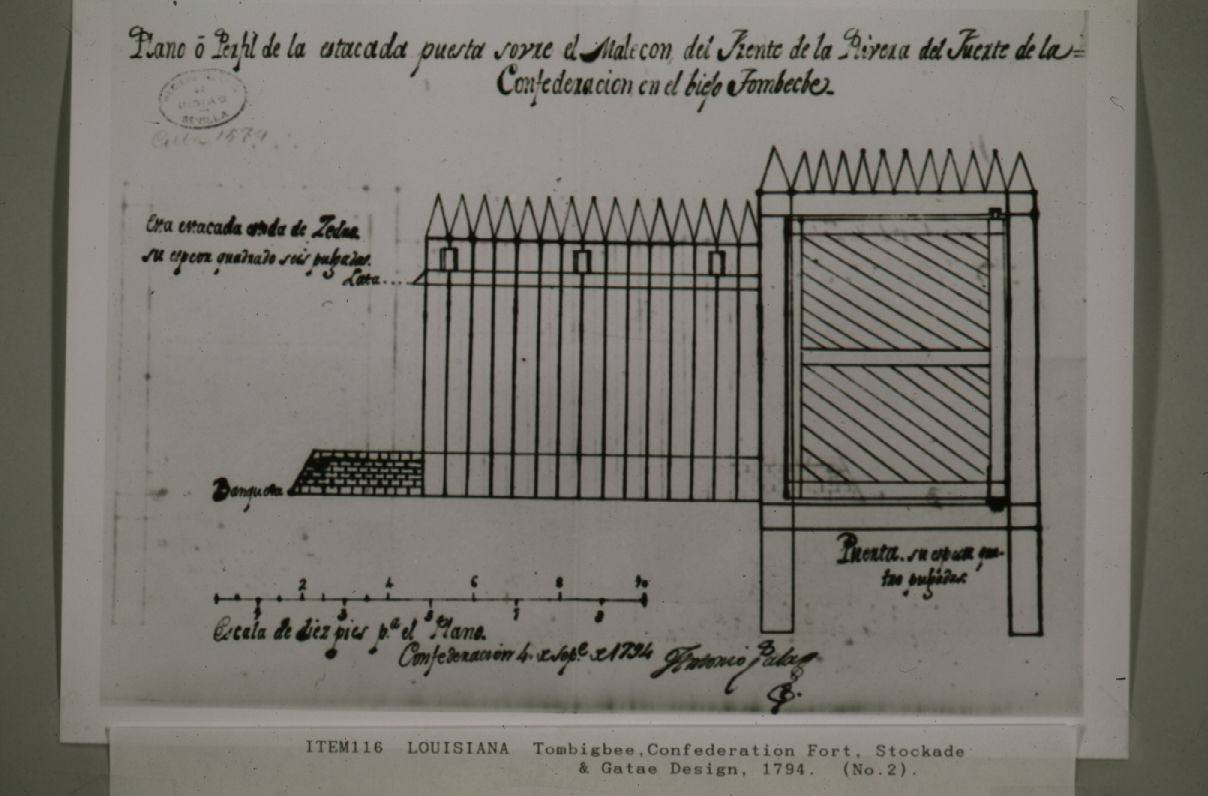 Plano ō Perfil de la estacada puesta sovre el Malecon del Frente de la Rivera del Fuerte de la
Confederacion en el biejo Tombecbe
INDIAS
SEVILLA
Esta estacada es toda de Zedro
su espesor quadrado seis pulgadas.
Lata....
Banqueta
Puerta. su espesor qua-
tro pulgadas.
2 4 6 8 10
1 3 5 7 9
Escala de diez pies p.ª el Plano.
Confederacion 4. x Sep.e x 1794 Antonio Palao
ITEM116 LOUISIANA Tombigbee,Confederation Fort, Stockade
& Gatae Design, 1794. (No.2).